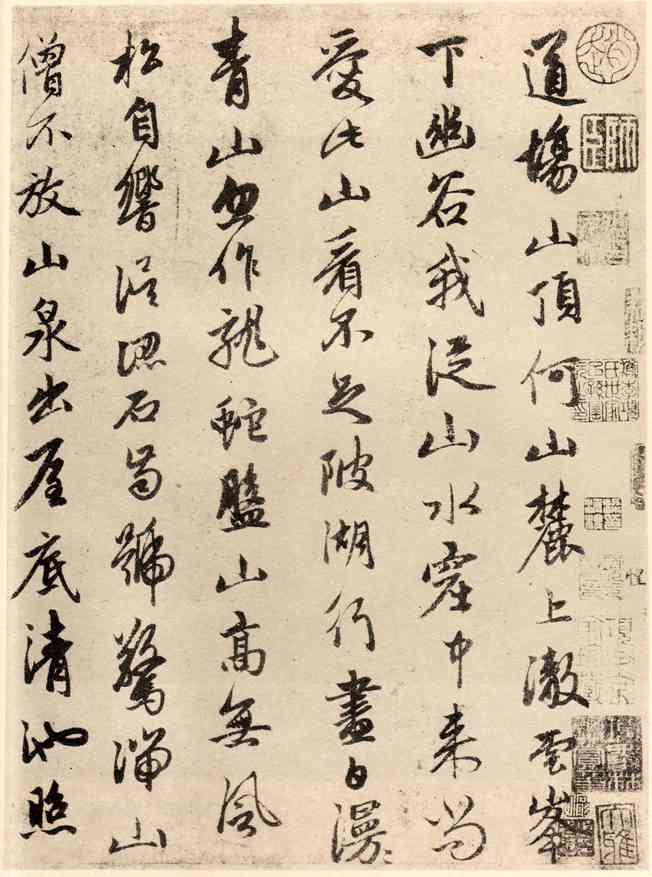 道場山頂何山麓上澈雲峯
下幽谷我從山水窟中来尚
愛此山看不足陂湖行盡白漫〻
青山忽作龍蛇盤山高無風
松自響誤認石齒號驚湍山
僧不放山泉出屋底清池照
大雅